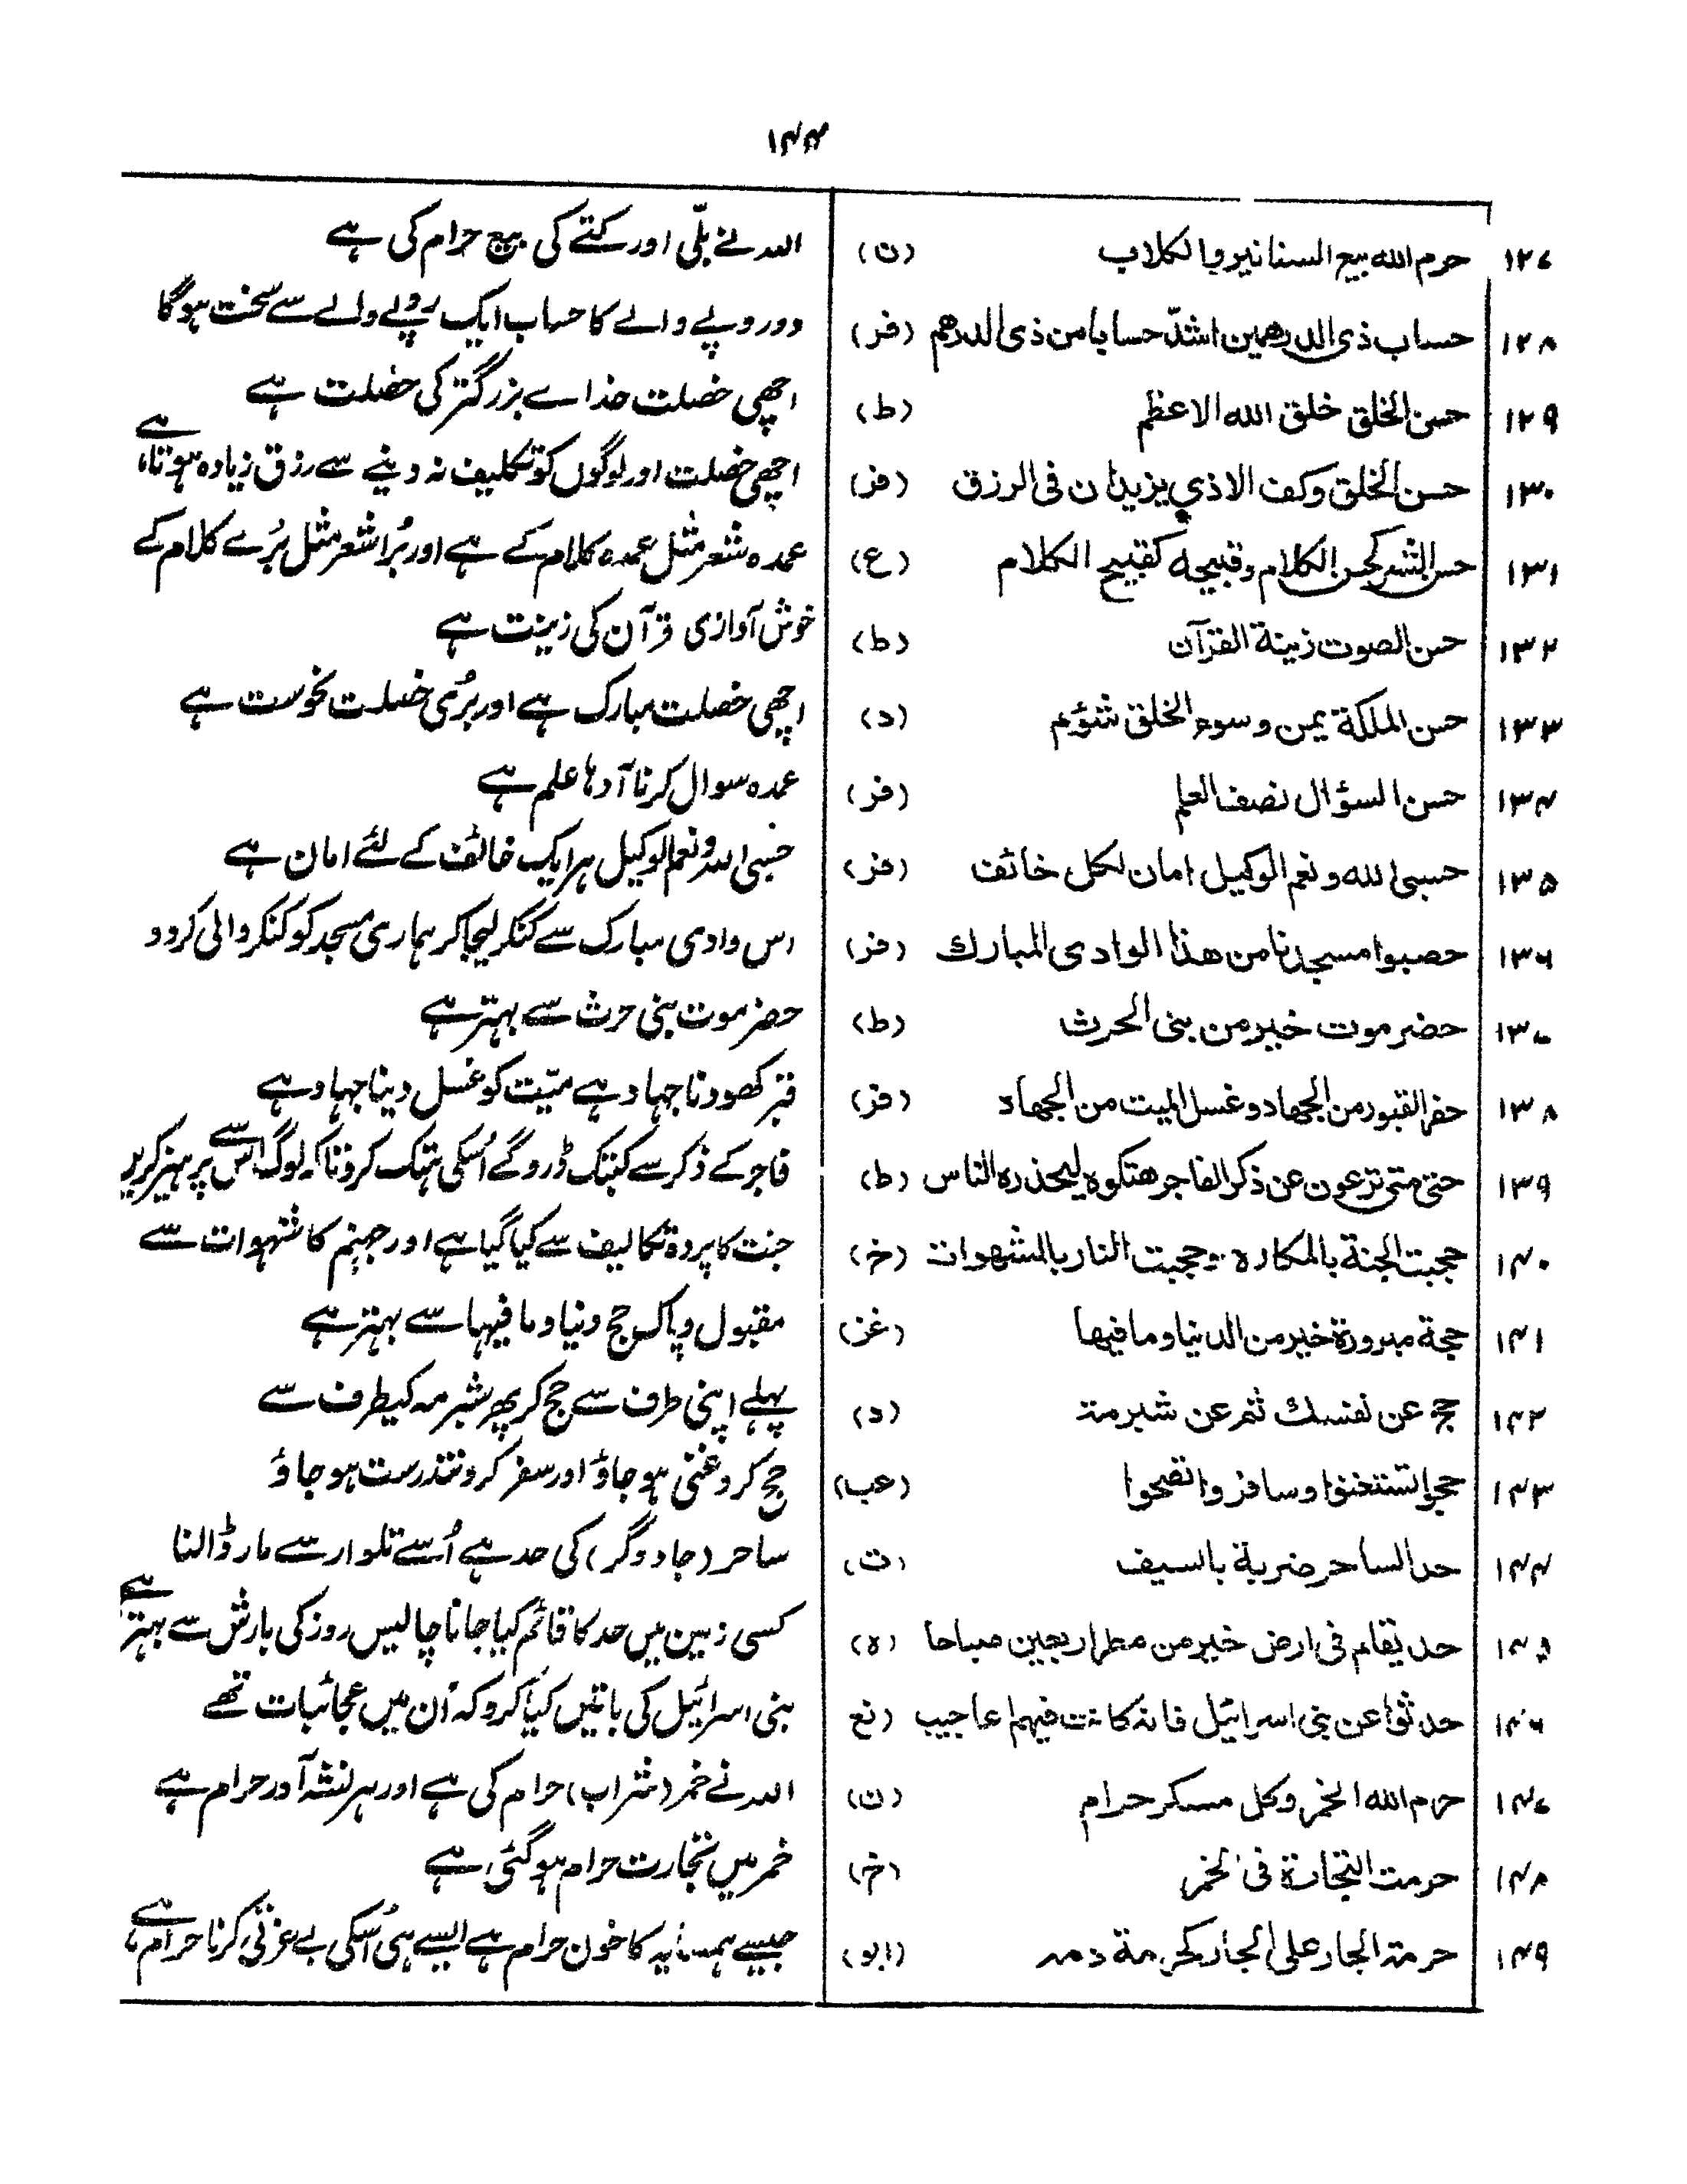 ۱۴۴
۱۲۷ حرم الله بيع السنانير والكلاب (ن) اللہ نے بلّی اور کتے کی بیع حرام کی ہے
۱۲۸ حساب ذي الدرهمين اشدّ حسابا من ذي الدرهم (فر) دو روپے والے کا حساب ایک روپے والے سے سخت ہوگا
۱۲۹ حسن الخلق خلق الله الاعظم (ط) اچھی خصلت خدائے بزرگتر کی خصلت ہے
۱۳۰ حسن الخلق وكف الاذي يزيدان فى الرزق (فر) اچھی خصلت اور لوگوں کو تکلیف نہ دینے سے رزق زیادہ ہوتا ہے
۱۳۱ حسن الشعر كحسن الكلام وقبيحه كقبيح الكلام (ع) عمدہ شعر مثل عمدہ کلام کے ہے اور بُرا شعر مثل بُرے کلام کے
۱۳۲ حسن الصوت زينة القرآن (ط) خوش آوازی قرآن کی زینت ہے
۱۳۳ حسن الملكة يمن وسوء الخلق شؤم (د) اچھی خصلت مبارک ہے اور بُری خصلت نحوست ہے
۱۳۴ حسن السؤال نصف العلم (فر) عمدہ سوال کرنا آدہا علم ہے
۱۳۵ حسبى الله ونعم الوكيل امان لكل خائف (فر) حسبی اللہ ونعم الوکیل ہر ایک خائف کے لئے امان ہے
۱۳۶ حصبوا مسجدنا من هذا الوادى المبارك (فر) اس وادی مبارک سے کنکر لیجاکر ہماری مسجد کو کنکر والی کردو
۱۳۷ حضرموت خير من بنى الحرث (ط) حضرموت بنی حرث سے بہتر ہے
۱۳۸ حفر القبور من الجهاد وغسل الميت من الجهاد (فر) قبر کھودنا جہاد ہے میّت کو غسل دینا جہاد ہے
۱۳۹ حتى متى تزعون عن ذكر الفاجر هتكوه ليحذره الناس (ط) فاجر کے ذکر سے کبتک ڈروگے اُسکی ہتک کرو تاکہ لوگ اس سے پرہیز کریں
۱۴۰ حجبت الجنة بالمكاره وحجبت النار بالشهوات (خ) جنت کا پردہ تکالیف سے کیا گیا ہے اور جہنم کا شہوات سے
۱۴۱ حجة مبرورة خير من الدنيا وما فيها (غز) مقبول و پاک حج دنیا و ما فیہا سے بہتر ہے
۱۴۲ حج عن نفسك ثم عن شبرمة (د) پہلے اپنی طرف سے حج کر پھر شبرمہ کیطرف سے
۱۴۳ حجوا تستغنوا وسافروا تصحوا (عب) حج کرو غنی ہوجاؤ اور سفر کرو تندرست ہوجاؤ
۱۴۴ حد الساحر ضربة بالسيف (ت) ساحر (جادوگر) کی حد ہے اُسے تلوار سے مار ڈالنا
۱۴۵ حد يقام فى ارض خير من مطر اربعين صباحا (ه) کسی زمین میں حد کا قائم کیا جانا چالیس روز کی بارش سے بہتر ہے
۱۴۶ حدثوا عن بنى اسرائيل فانه كانت فيهم اعاجيب (نع بنی اسرائیل کی باتیں کیا کرو کہ اُن میں عجائبات تھے
۱۴۷ حرم الله الخمر وكل مسكر حرام (ن) اللہ نے خمر (شراب) حرام کی ہے اور ہر نشہ آور حرام ہے
۱۴۸ حرمت التجارة فى الخمر (خ) خمر میں تجارت حرام ہوگئی ہے
۱۴۹ حرمة الجار على الجار كحرمة دمه (ابو) جیسے ہمسایہ کا خون حرام ہے ایسے ہی اُسکی بے عزتی کرنا حرام ہے